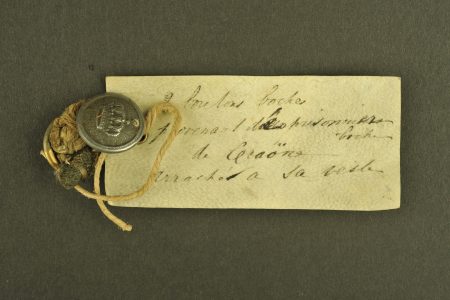 2 boutons boches
provenant de prisonniers
boche
de Craône
arraches a sa veste